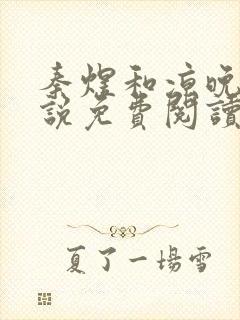 秦煜和凉晚
說免費閱讀
夏了一場雪